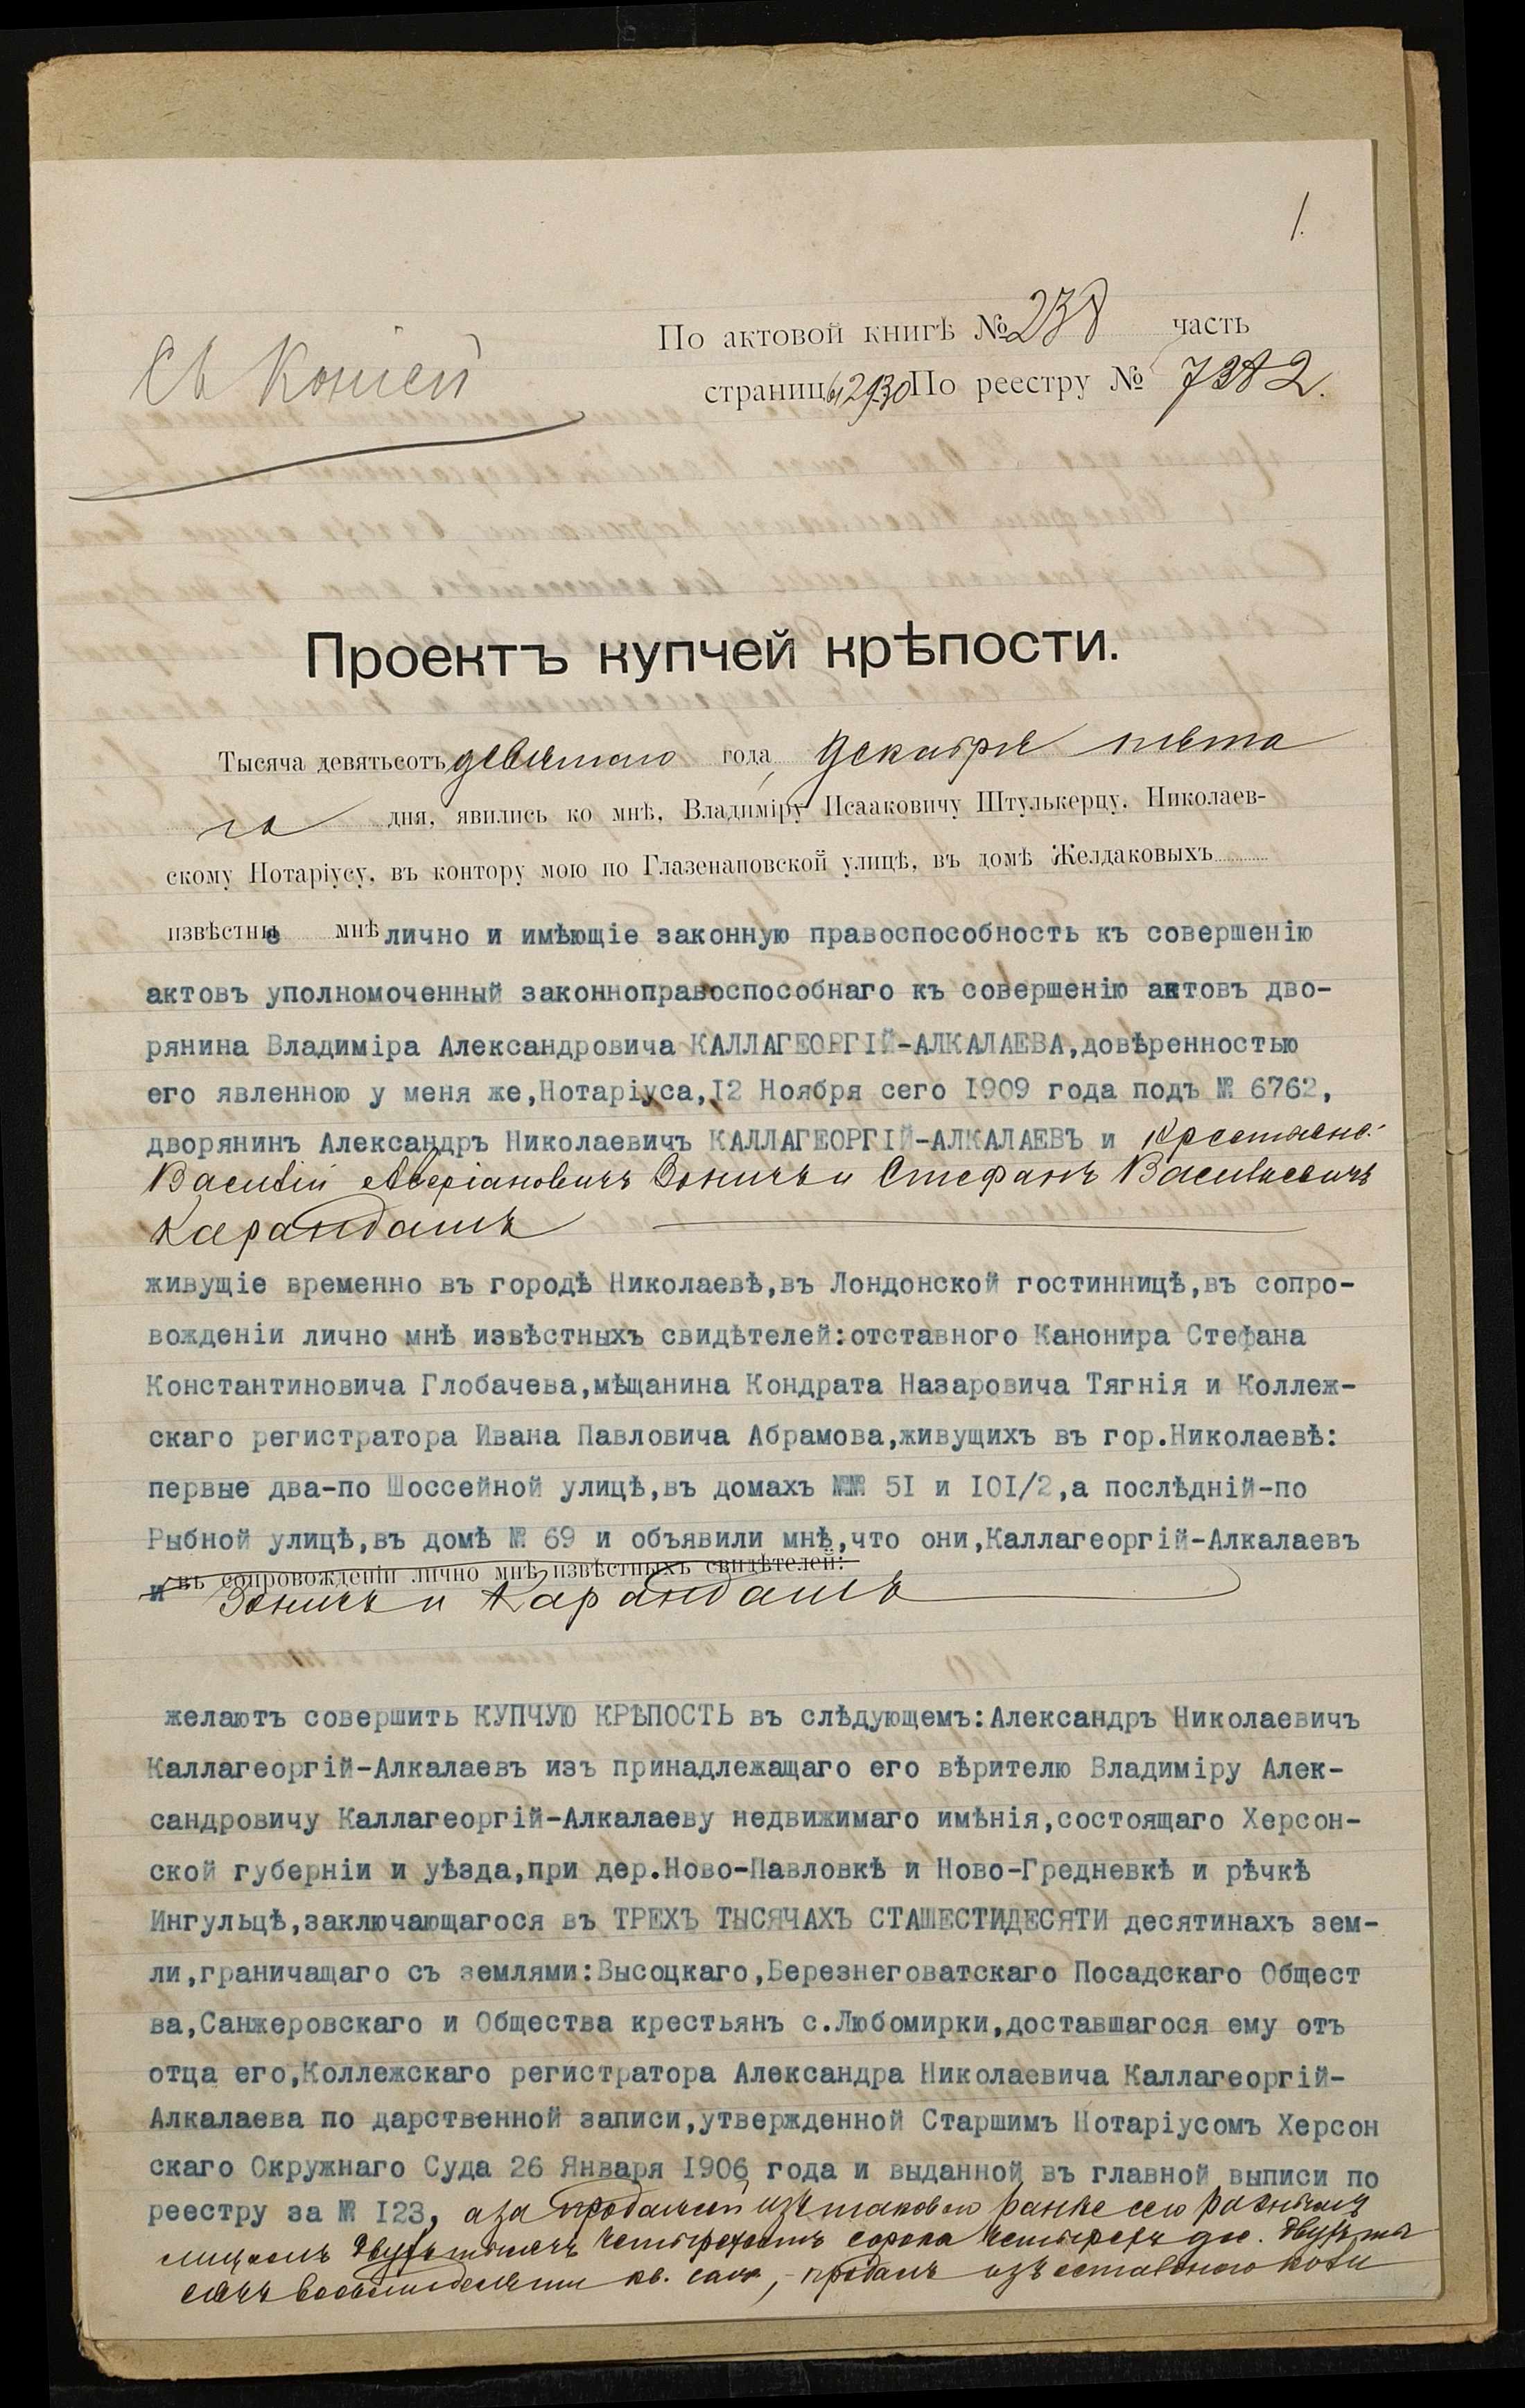 1.
Съ Копіей
По актовой книгѣ № 238 часть
страницы 129/30 По реестру № 7382.
Проектъ купчей крѣпости.
Тысяча девятьсотъ девятаго года, Декабря пята
го дня, явились ко мнѣ, Владиміру Исааковичу Штулькерцу, Николаев-
скому Нотаріусу, въ контору мою по Глазенаповской улицѣ, въ домѣ Желдаковыхъ
извѣстные мнѣ лично и имѣющіе законную правоспособность къ совершенію
актовъ уполномоченный законноправоспособнаго къ совершенію актовъ дво-
рянина Владиміра Александровича КАЛЛАГЕОРГІЙ-АЛКАЛАЕВА,довѣренностью
его явленною у меня же,Нотаріуса,I2 Ноября сего I909 года подъ № 6762,
дворянинъ Александръ Николаевичъ КАЛЛАГЕОРГІЙ-АЛКАЛАЕВЪ и крестьяне:
Василій Аверіановичъ Зоничъ и Стефанъ Васильевичъ
Карандашъ
живущіе временно въ городѣ Николаевѣ,въ Лондонской гостинницѣ,въ сопро-
вожденіи лично мнѣ извѣстныхъ свидѣтелей:отставного Канонира Стефана
Константиновича Глобачева,мѣщанина Кондрата Назаровича Тягнія и Коллеж-
скаго регистратора Ивана Павловича Абрамова,живущихъ въ гор.Николаевѣ:
первые два-по Шоссейной улицѣ,въ домахъ №№ 5I и I0I/2,а послѣдній-по
Рыбной улицѣ,въ домѣ № 69 и объявили мнѣ,что они,Каллагеоргій-Алкалаевъ
въ сопровожденіи лично мнѣ извѣстныхъ свидѣтелей:
и Зоничъ и Карандашъ
желаютъ совершить КУПЧУЮ КРѢПОСТЬ въ слѣдующемъ:Александръ Николаевичъ
Каллагеоргій-Алкалаевъ изъ принадлежащаго его вѣрителю Владиміру Алек-
сандровичу Каллагеоргій-Алкалаеву недвижимаго имѣнія,состоящаго Херсон-
ской губерніи и уѣзда,при дер.Ново-Павловкѣ и Ново-Гредневкѣ и рѣчкѣ
Ингульцѣ,заключающагося въ ТРЕХЪ ТЫСЯЧАХЪ СТАШЕСТИДЕСЯТИ десятинахъ зем-
ли,граничащаго съ землями:Высоцкаго,Березнеговатскаго Посадскаго Общест
ва,Санжеровскаго и Общества крестьянъ с.Любомирки,доставшагося ему отъ
отца его,Коллежскаго регистратора Александра Николаевича Каллагеоргій-
Алкалаева по дарственной записи,утвержденной Старшимъ Нотаріусомъ Херсон
скаго Окружнаго Суда 26 Января I906 года и выданной въ главной выписи по
реестру за № I23, а за продажей изъ таковаго ранѣе сего разнымъ
лицамъ двухъ тысячъ четырехсотъ сорока четырехъ дес. двухъ ты
сячъ восьмидесяти кв. саж, - продалъ изъ оставшаго